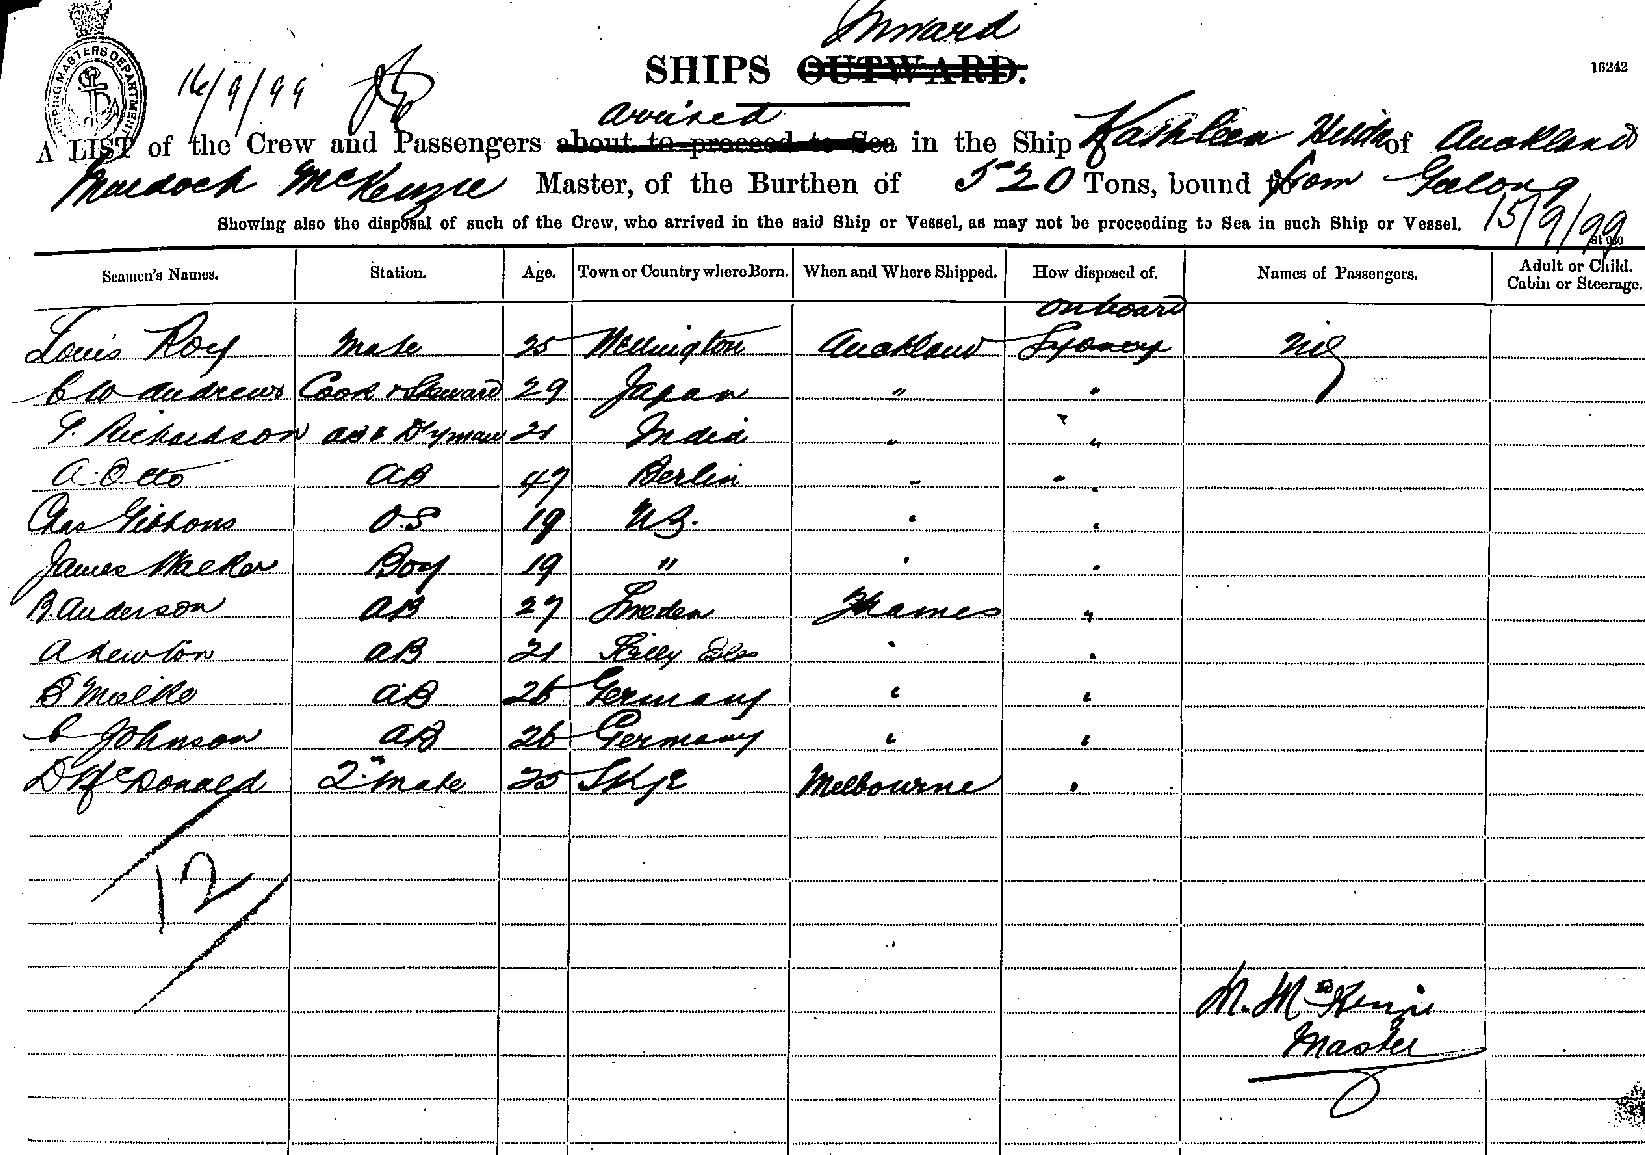 Inward
SHIPS OUTWARD.
16242
SHIPPING MASTERS DEPARTMENT
16/9/99
arrived
A LIST of the Crew and Passengers about to proceed to Sea in the Ship Kathleen Hilda of Auckland
Murdoch McKenzie Master, of the Burthen of 520 Tons, bound from Geelong
Showing also the disposal of such of the Crew, who arrived in the said Ship or Vessel, as may not be proceeding to Sea in such Ship or Vessel. 15/9/99
Seamen's Names. Station. Age. Town or Country where Born. When and Where Shipped. How disposed of. Names of Passengers. Adult or Child. Cabin or Steerage.
onboard
Louis Roy Mate 25 Wellington Auckland Sydney Nil
C W Andrews Cook & Steward 29 Japan " "
Richardson AB & D'yman 21 India " "
A. Otto AB 47 Berlin " "
Chas Gibbons OS 19 N.Z. " "
James Walker Boy 19 " " "
B. Anderson AB 27 Sweden Thames "
A Newton AB 21 Scilly Isles " "
AB 26 Germany " "
C Johnson AB 26 Germany " "
D McDonald 2n Mate 25 Skye Melbourne "
12
M. McKenzie
Master